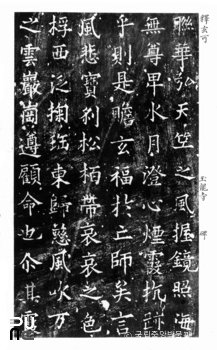 釋玄可 玉龍寺 碑
聯華弘天竺之風握鏡照海
無尊卑水月澄心煙霞抗跡
乎則是瞻玄福於正師矣言
風悲寶刹松栢帶哀哀之色
桴西泛掬珤東歸慈風吹万
之雲巖崗遵顧命也尒其
국립중앙박물관